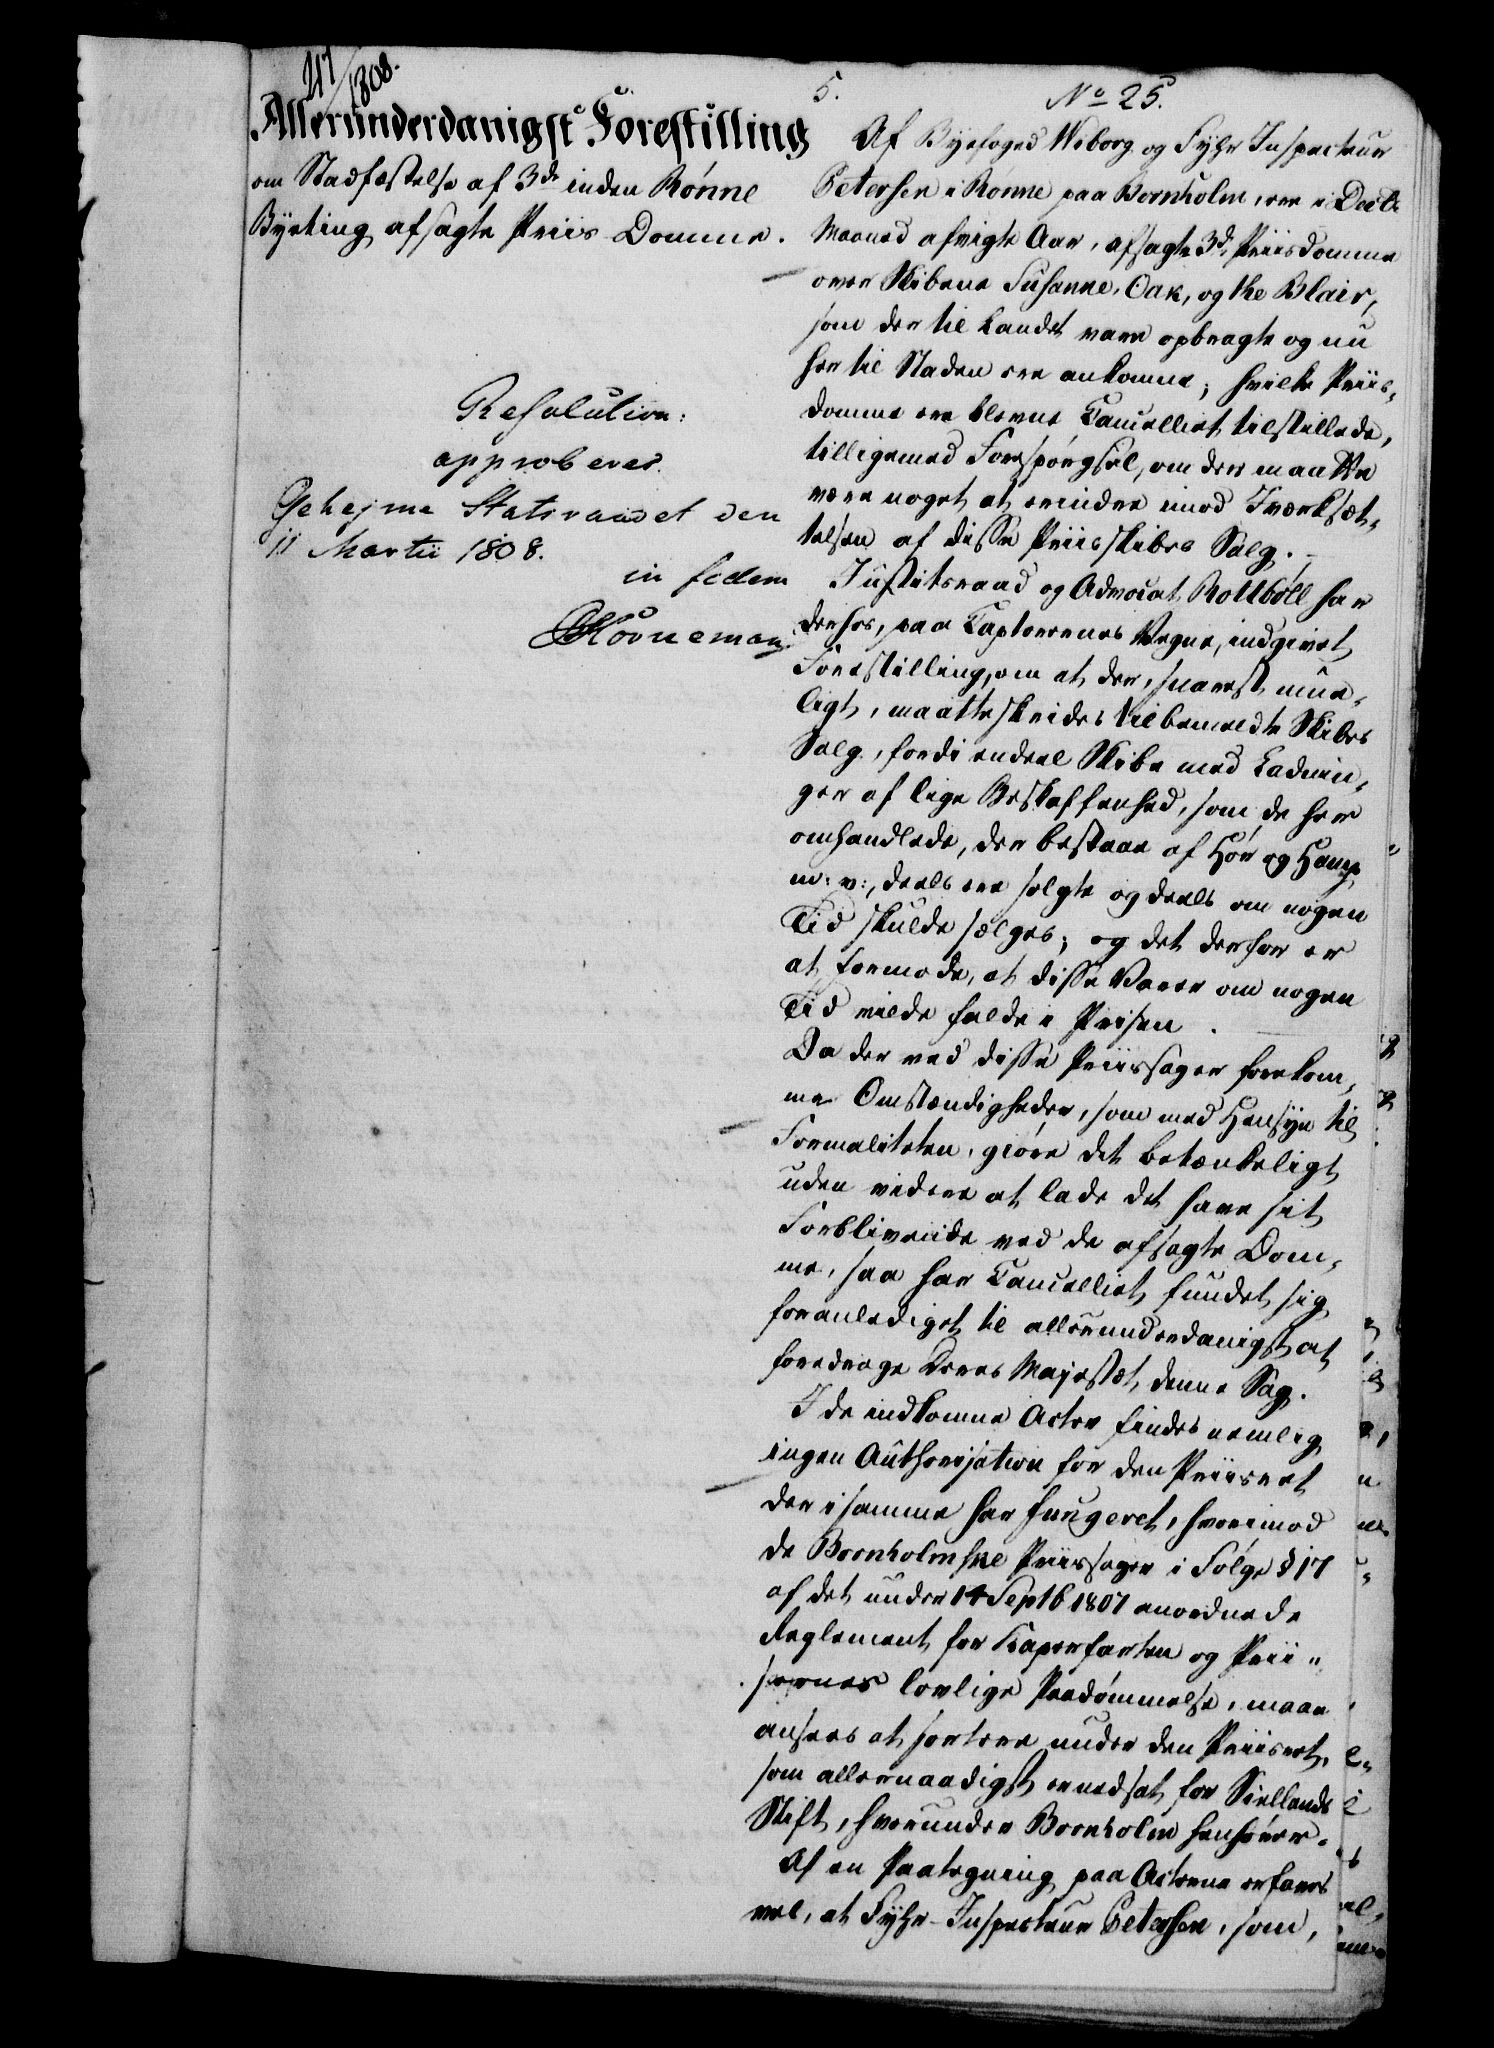 217/1808.
Allerunderdanigst Forestilling
om Stadfæstelse af 3de inden Rønne
Byeting afsagte Priis-Domme.
Resolution:
approberes.
Gehejme Statsraadet den
11 Martii 1808.
in fidem
Hövnemann
5.
No 25.
Af Byefoged Wiborg og Fyhr Inspecteur
Petersen i Rønne paa Bornholm, ere i Decb.
Maaned afvigte Aar, afsagte 3de Priisdomme
over Skibene Susanne, Oak, og the Blair,
som der til Landet vare opbragte og nu
her til Staden ere ankomne; hvilke Priis-
domme ere blevne Cancelliet tilstillede,
tilligemed Forespørgsel, om der maatte
være noget at erindre imod Iværksæt-
telsen af disse Priisskibes Salg.
Justitsraad og Advocat Rottbøll har
derhos, paa Captorernes Vegne, indgivet
Forestilling, om at der, snarest mue-
ligt, maatte skrides til bemeldte Skibes
Salg, fordi endeel Skibe med Ladnin-
ger af lige Beskaffenhed, som de her
omhandlede, der bestaae af Hør og Hamp
m: v:, deels ere solgte og deels om nogen
Tid skulde sælges; og det derfor er
at formode, at disse Varer om nogen
Tid vilde falde i Prisen.
Da der ved disse Priissager forekom-
me Omstændigheder, som med Hensyn til
Formaliteten, giøre det betænkeligt
uden videre at lade det have sit
Forblivende ved de afsagte Dom-
me, saa har Cancelliet fundet sig
foranlediget til allerunderdanigst at
foredrage Deres Majestæt denne Sag.
I de indkomne Acter findes nemlig
ingen Authorisation for den Priisret
der i samme har fungeret, hvorimod
de Bornholmske Priissager i Følge §17
af det under 14 Septb 1807 anordnede
Reglement for Kaperfarten og Prii-
sernes lovlige Paadømmelse, maae
ansees at sortere under den Priisret,
som allernaadigst er nedsat for Siellands
Stift, hvorunder Bornholm henhører.
Af en Paategning paa Acterne erfares
vel, at Fyhr-Inspecteur Petersen, som,